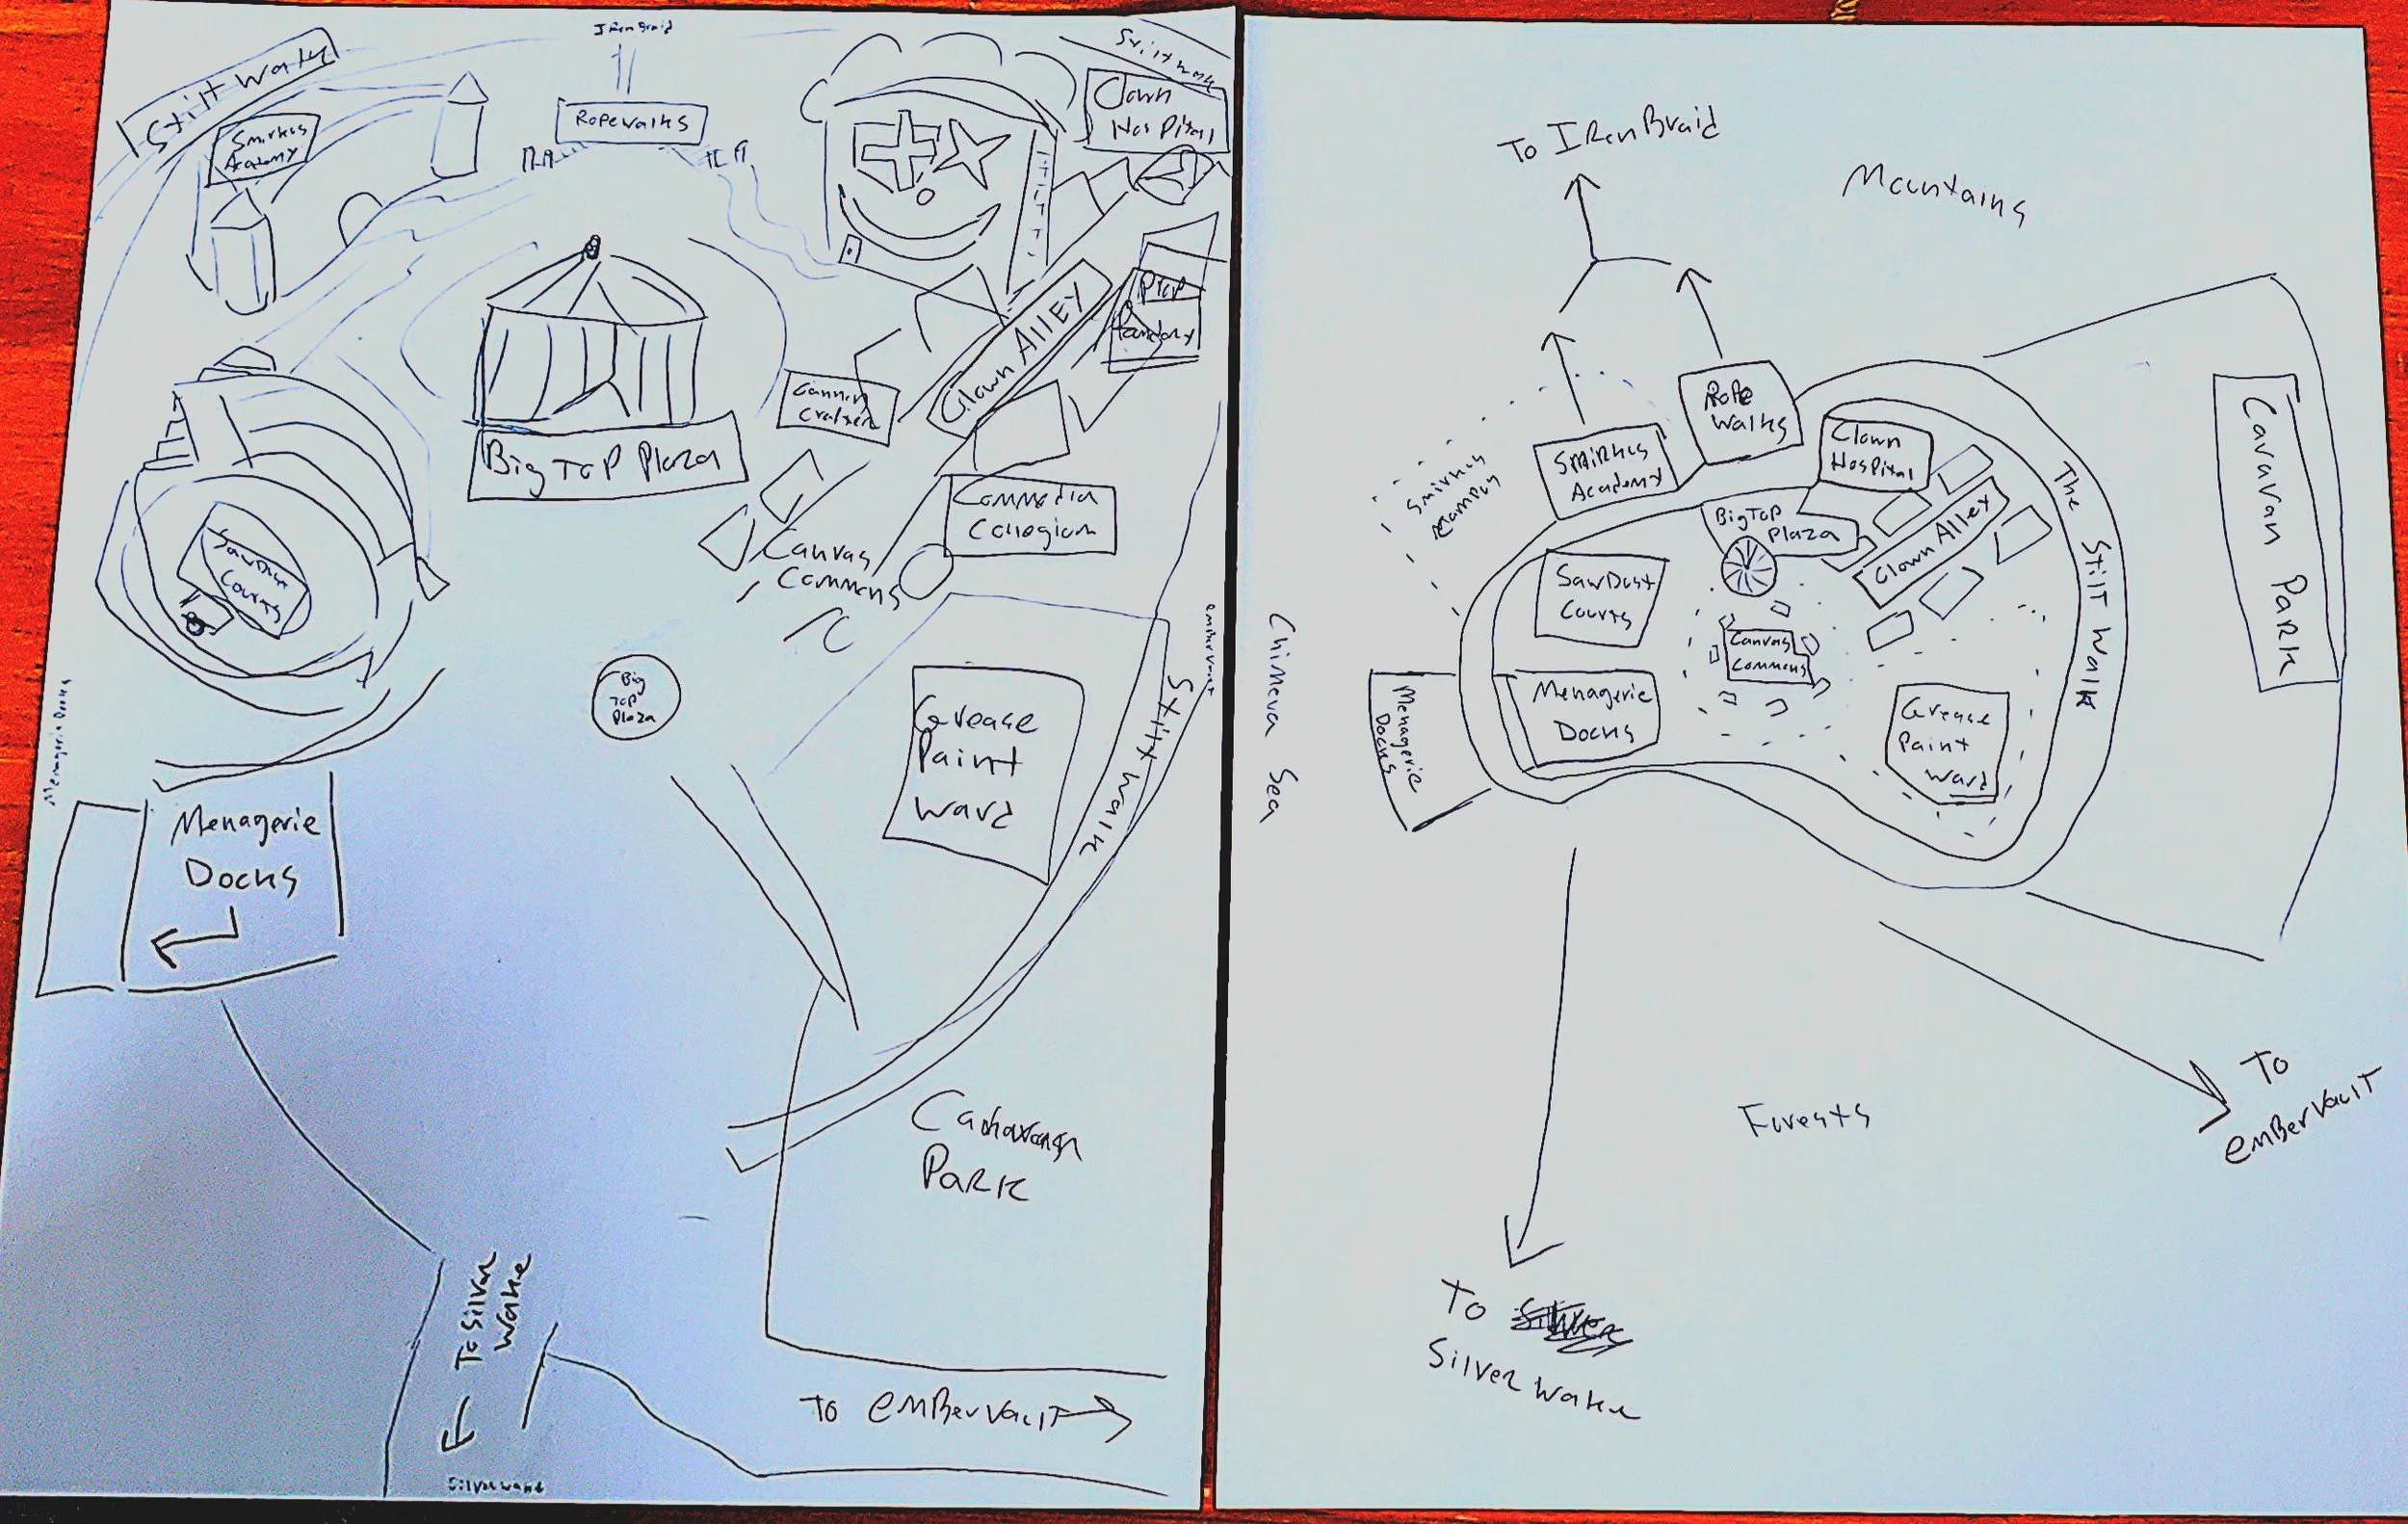 Stilt Walk
Smirkus
Academy
Iron Braid
Ropewalks
Stilt walk
Clown
Hospital
Prop
Clown ALLEY
Cannon
Big ToP Plaza
Commedia
Collegium
Canvas
Commons
SawDust
Courts
Big
ToP
Plaza
Grease
Paint
Ward
Stilt walk
emBervault
Menagerie Docks
Menagerie
Docks
PARK
To Silver
Wake
Silverwake
To emBervault
To IRonBraid
Mountains
Caravan PaRk
Rope
Walks
SMiRkus
Academy
Smirkus
Clown
Hospital
The Stilt Walk
BigToP
Plaza
Clown Alley
SawDust
Courts
Canvas
Commons
Menagerie
Docks
Menagerie
Docks
Grease
Paint
Ward
Chimera Sea
Forests
To
emBervault
To
SilveR Wake